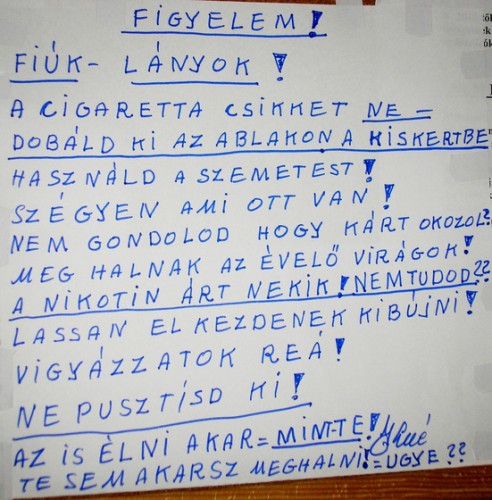 FIGYELEM!
FIÚK- LÁNYOK!
A CIGARETTA CSIKKET NE =
DOBÁLD KI AZ ABLAKON A KISKERTBE"
HASZNÁLD A SZEMETEST!
SZÉGYEN AMI OTT VAN!
NEM GONDOLOD HOGY KÁRT OKOZOL?
MEG HALNAK AZ ÉVELŐ VIRÁGOK!
A NIKOTIN ÁRT NEKIK! NEMTUDOD??
LASSAN ELKEZDENEK KIBÚJNI!
VIGYÁZZATOK REÁ!
NE PUSZTÍSD KI!
AZ IS ÉLNI AKAR= MINT-TE!
TE SEMAKARSZ MEGHALNI!=UGYE??